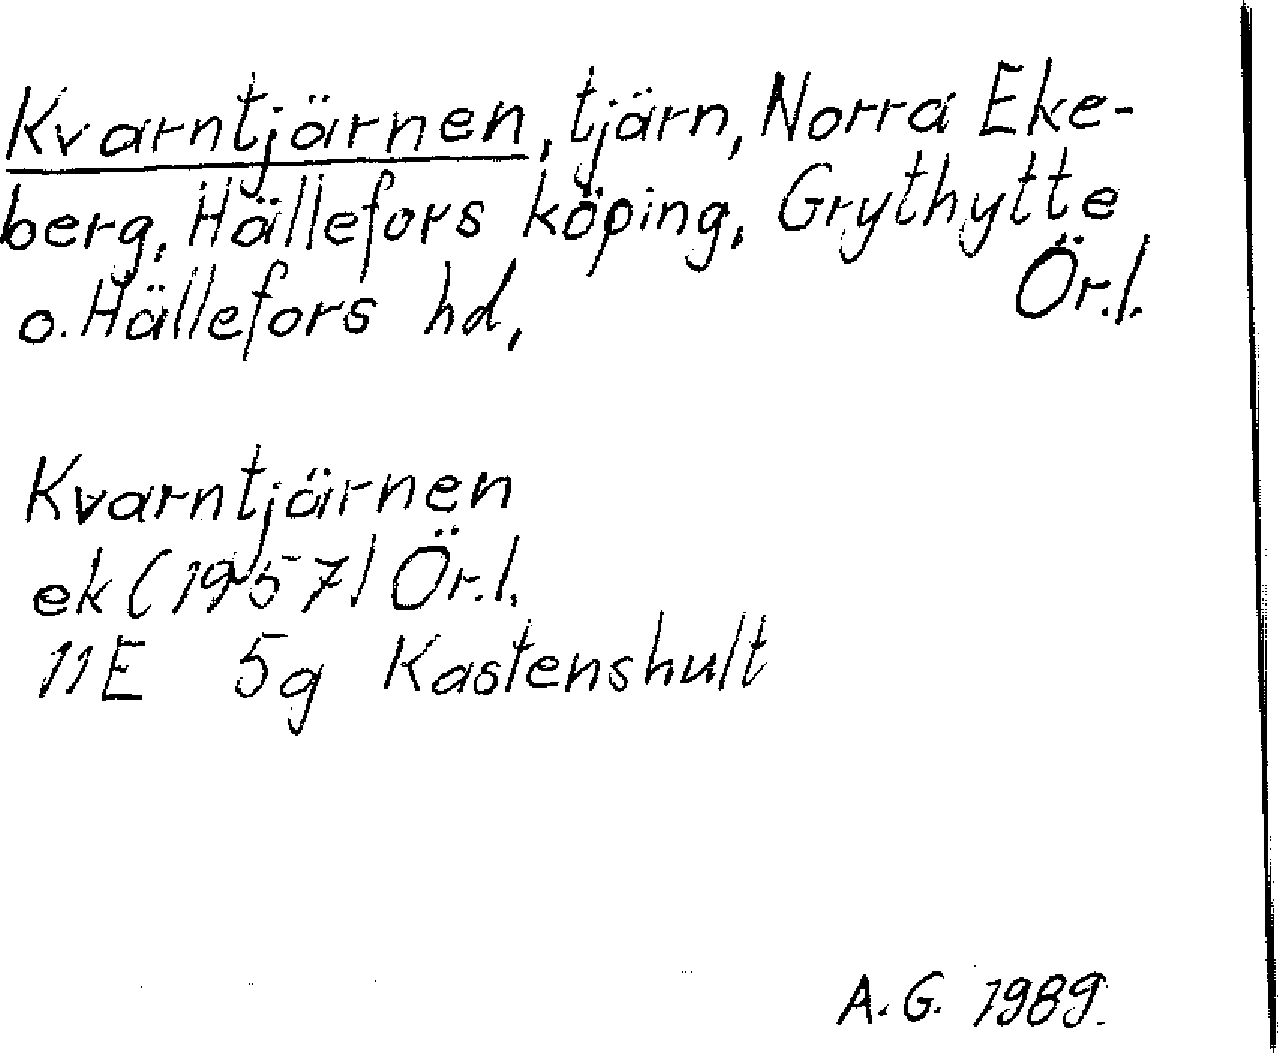 Kvarntjärnen, tjärn, Norra Eke-
berg, Hällefors köping, Grythytte
o. Hällefors hd, Ör.l.
Kvarntjärnen
ek (1957) Ör.l.
11E 5g Kastenshult
A.G. 1989.